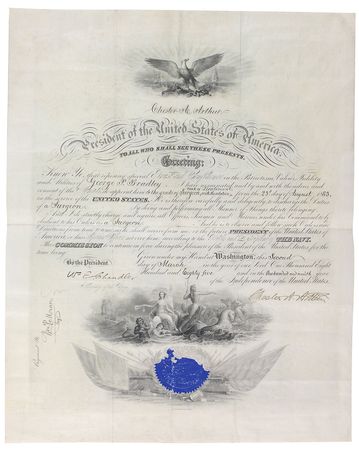 Chester A. Arthur
President of the United States of America.
TO ALL WHO SHALL SEE THESE PRESENTS,
Greeting:
Know Ye, that reposing special Trust and Confidence in the Patriotism, Valour, Fidelity
and Abilities of George P. Bradley I have nominated and by and with the advice and
consent of the Senate do appoint him a Surgeon from the 23d of August, 1883,
in the service of the UNITED STATES. He is therefore carefully and diligently to discharge the duties
of a Surgeon by doing and performing all manner of Things thereto belonging.
And I do strictly charge and require all Officers, Seamen and Marines under his Command to be
obedient to his Orders as Surgeon And he is to observe and follow such Orders and
Directions from time to time as he shall receive from me or the future PRESIDENT of the United States of
America THE NAVY.
This COMMISSION to continue in force during the pleasure of the President of the United States for the
time being.
Given under my Hand at Washington, this Second
day of March in the year of our Lord One Thousand Eight
Hundred and Eighty five and in the One hundred and ninth year
of the Independence of the United States.
By the President
Wm E. Chandler
Chester A. Arthur